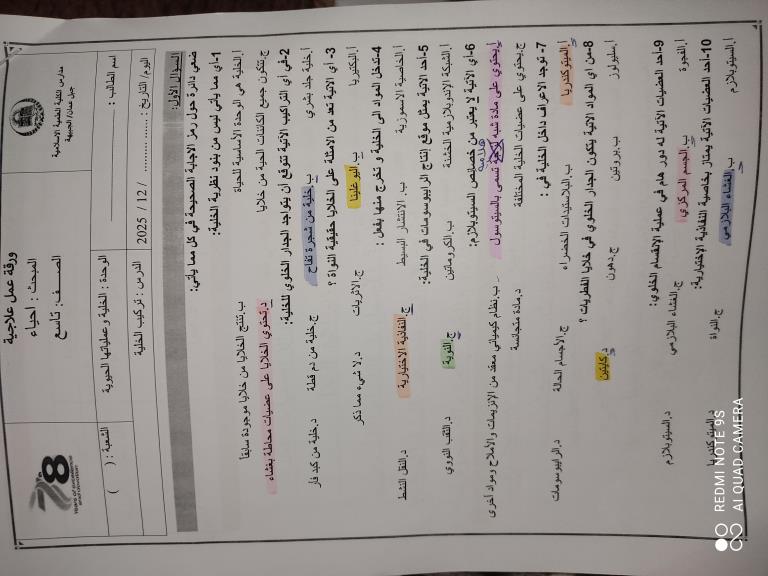 مدارس نظمية العلمية الإسلامية
جبل عمان/ الجبيهة
ورقة عمل علاجية
المبحث : احياء
الصف: تاسع
78
Years of excellence
and devotion
اسم الطالب :
الوحدة : الخلية وعملياتها الحيوية
الشعبة : ( )
اليوم/ التاريخ : ...... / 12 / 2025
الدرس : تركيب الخلية
السؤال الأول:
ضعي دائرة حول رمز الاجابة الصحيحة في كل مما يأتي:
1-اي مما يأتي ليس من بنود نظرية الخلية:
أ.الخلية هي الوحدة الأساسية للحياة
ب.تنتج الخلايا من خلايا موجودة سابقا
ج.تتكون جميع الكائنات الحية من خلايا
د.تحتوي الخلايا على عضيات محاطة بغشاء
2-في أي التراكيب الآتية تتوقع ان يتواجد الجدار الخلوي للخلية:
أ.خلية جلد بشري
ب.خلية من شجرة تفاح
ج.خلية من دم قطة
د.خلية من كبد فأر
3- أي الآتية تعد من الامثلة على الخلايا حقيقية النواة ؟
أ.البكتيريا
ب.اليوغلينا
ج.الاثريات
د.لا شيء مما ذكر
4-تدخل المواد الى الخلية و تخرج منها بفعل :
أ.الخاصية الاسموزية
ب. الانتشار البسيط
ج.النفاذية الاختيارية
د.النقل النشط
5-أحد الاتية يمثل موقع إنتاج الرايبوسومات في الخلية:
أ.الشبكة الاندوبلازمية الخشنة
ب.الكروماتين
ج.النوية
د.الثقب النووي
6-أي الآتية لا يعتبر من خصائص السيتوبلازم:
أ.يحتوي على مادة شبه هلامية تسمى بالسيتوسول
ب.نظام كيميائي معقد من الإنزيمات والأملاح ومواد أخرى
ج.يحتوي على عضيات الخلية المختلفة
د.مادة متجانسة
7- توجد الاعراف داخل الخلية في :
أ.الميتوكندريا
ب.البلاستيدات الخضراء
ج.الأجسام الحالة
د.الرايبوسومات
8-من اي المواد الاتية يتكون الجدار الخلوي في خلايا الفطريات ؟
أ.سليولوز
ب.بروتين
ج.دهون
د.كايتين
9-أحد العضيات الآتية له دور هام في عملية الإنقسام الخلوي:
أ.الفجوة
ب.الجسم المركزي
ج.الغشاء البلازمي
د.السيتوبلازم
10-أحد العضيات الآتية يمتاز بخاصية النفاذية الإختيارية:
أ.السيتوبلازم
ب.الغشاء البلازمي
ج.النواة
د.الميتوكندريا
REDMI NOTE 9S
AI QUAD CAMERA